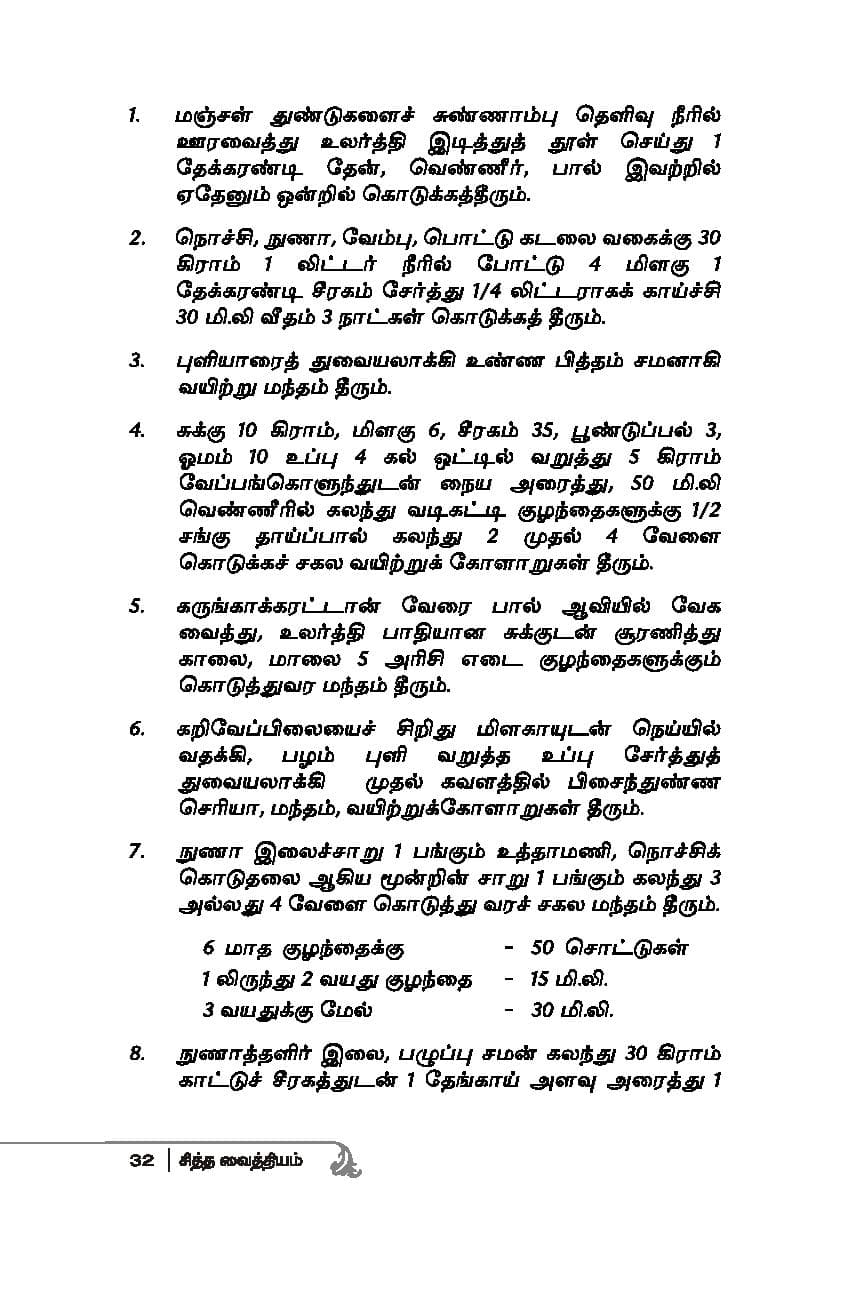 1. மஞ்சள் துண்டுகளைச் சுண்ணாம்பு தெளிவு நீரில்
ஊரவைத்து உலர்த்தி இடித்துத் தூள் செய்து 1
தேக்கரண்டி தேன், வெண்ணீர், பால் இவற்றில்
ஏதேனும் ஒன்றில் கொடுக்கத்தீரும்.
2. நொச்சி, நுணா, வேம்பு, பொட்டு கடலை வகைக்கு 30
கிராம் 1 லிட்டர் நீரில் போட்டு 4 மிளகு 1
தேக்கரண்டி சீரகம் சேர்த்து 1/4 லிட்டராகக் காய்ச்சி
30 மி.லி வீதம் 3 நாட்கள் கொடுக்கத் தீரும்.
3. புளியாரைத் துவையலாக்கி உண்ண பித்தம் சமனாகி
வயிற்று மந்தம் தீரும்.
4. சுக்கு 10 கிராம், மிளகு 6, சீரகம் 35, பூண்டுப்பல் 3,
ஓமம் 10 உப்பு 4 கல் ஒட்டில் வறுத்து 5 கிராம்
வேப்பங்கொளுந்துடன் நைய அரைத்து, 50 மி.லி
வெண்ணீரில் கலந்து வடிகட்டி குழந்தைகளுக்கு 1/2
சங்கு தாய்ப்பால் கலந்து 2 முதல் 4 வேளை
கொடுக்கச் சகல வயிற்றுக் கோளாறுகள் தீரும்.
5. கருங்காக்கரட்டான் வேரை பால் ஆவியில் வேக
வைத்து, உலர்த்தி பாதியான சுக்குடன் சூரணித்து
காலை, மாலை 5 அரிசி எடை குழந்தைகளுக்கும்
கொடுத்துவர மந்தம் தீரும்.
6. கறிவேப்பிலையைச் சிறிது மிளகாயுடன் நெய்யில்
வதக்கி, பழம் புளி வறுத்த உப்பு சேர்த்துத்
துவையலாக்கி முதல் கவளத்தில் பிசைந்துண்ண
செரியா, மந்தம், வயிற்றுக்கோளாறுகள் தீரும்.
7. நுணா இலைச்சாறு 1 பங்கும் உத்தாமணி, நொச்சிக்
கொடுதலை ஆகிய மூன்றின் சாறு 1 பங்கும் கலந்து 3
அல்லது 4 வேளை கொடுத்து வரச் சகல மந்தம் தீரும்.
6 மாத குழந்தைக்கு - 50 சொட்டுகள்
1 லிருந்து 2 வயது குழந்தை - 15 மி.லி.
3 வயதுக்கு மேல் - 30 மி.லி.
8. நுணாத்தளிர் இலை, பழுப்பு சமன் கலந்து 30 கிராம்
காட்டுச் சீரகத்துடன் 1 தேங்காய் அளவு அரைத்து 1
32 சித்த வைத்தியம்